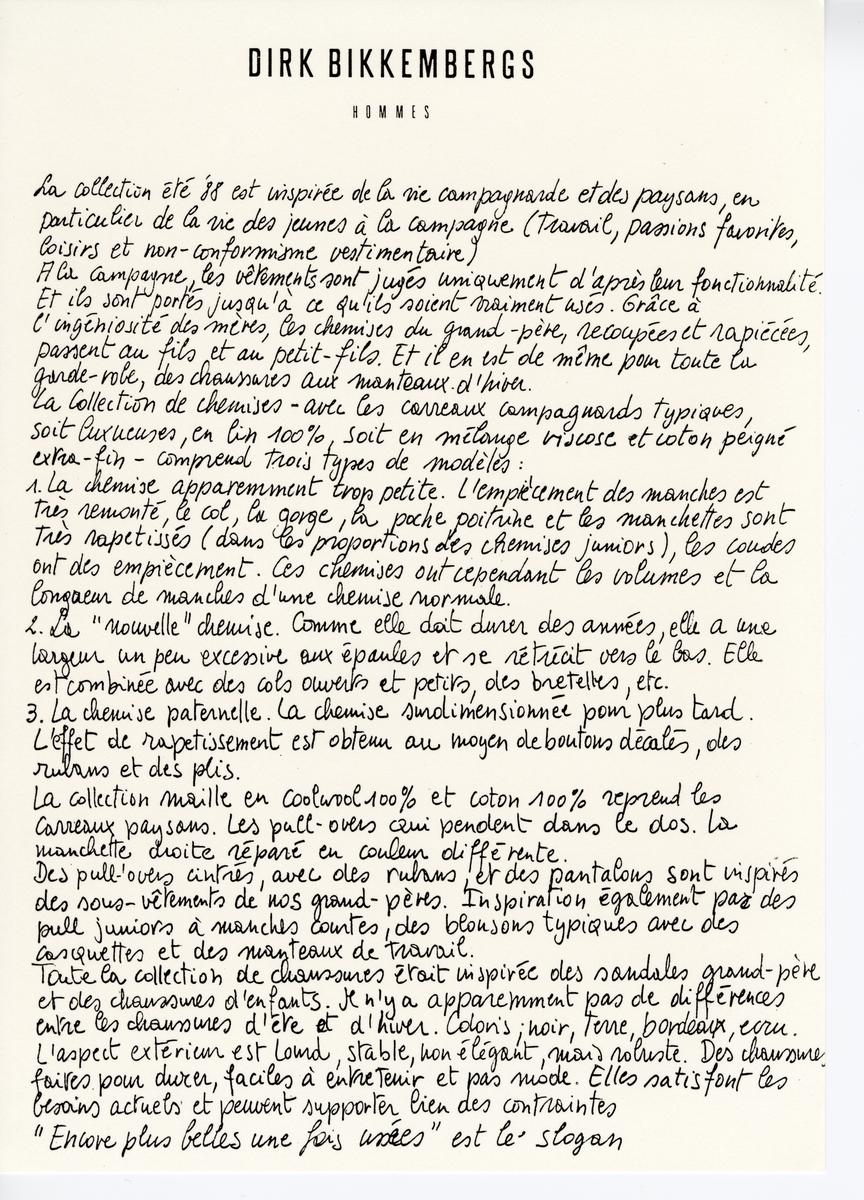 DIRK BIKKEMBERGS
HOMMES
La collection été '88 est inspirée de la vie campagnarde et des paysans, en
particulier de la vie des jeunes à la campagne (Travail, passions favorites,
loisirs et non-conformisme vestimentaire)
A la campagne, les vêtements sont jugés uniquement d'après leur fonctionnalité.
Et ils sont portés jusqu'à ce qu'ils soient vraiment usés. Grâce à
l'ingéniosité des mères, les chemises du grand-père, recoupées et rapiécées,
passent au fils et au petit-fils. Et il en est de même pour toute la
garde-robe, des chaussures aux manteaux d'hiver.
La Collection de chemises - avec les carreaux campagnards typiques,
soit luxueuses, en lin 100%, soit en mélange viscose et coton peigné
extra-fin - comprend trois types de modèles :
1. La chemise apparemment trop petite. L'empiècement des manches est
très remonté, le col, la gorge, la poche poitrine et les manchettes sont
très rapetissés (dans les proportions des chemises juniors), les coudes
ont des empiècement. Ces chemises ont cependant les volumes et la
longueur de manches d'une chemise normale.
2. La "nouvelle" chemise. Comme elle doit durer des années, elle a une
largeur un peu excessive aux épaules et se rétrécit vers le bas. Elle
est combinée avec des cols ouverts et petits, des bretelles, etc.
3. La chemise paternelle. La chemise surdimensionnée pour plus tard.
L'effet de rapetissement est obtenu au moyen de boutons décalés, des
rubans et des plis.
La collection maille en Coolwool 100% et coton 100% reprend les
carreaux paysans. Les pull-overs qui pendent dans le dos. La
manchette droite réparé en couleur différente.
Des pull-overs cintrés, avec des rubans, et des pantalons sont inspirés
des sous-vêtements de nos grand-pères. Inspiration également par des
pull juniors à manches courtes, des blousons typiques avec des
casquettes et des manteaux de travail.
Toute la collection de chaussures était inspirée des sandales grand-père
et des chaussures d'enfants. Il n'y a apparemment pas de différences
entre les chaussures d'été et d'hiver. Coloris ; noir, Terre, bordeaux, ecru.
L'aspect extérieur est lourd, stable, non élégant, mais robuste. Des chaussures
faites pour durer, faciles à entretenir et pas mode. Elles satisfont les
besoins actuels et peuvent supporter bien des contraintes
"Encore plus belles une fois usées" est le slogan